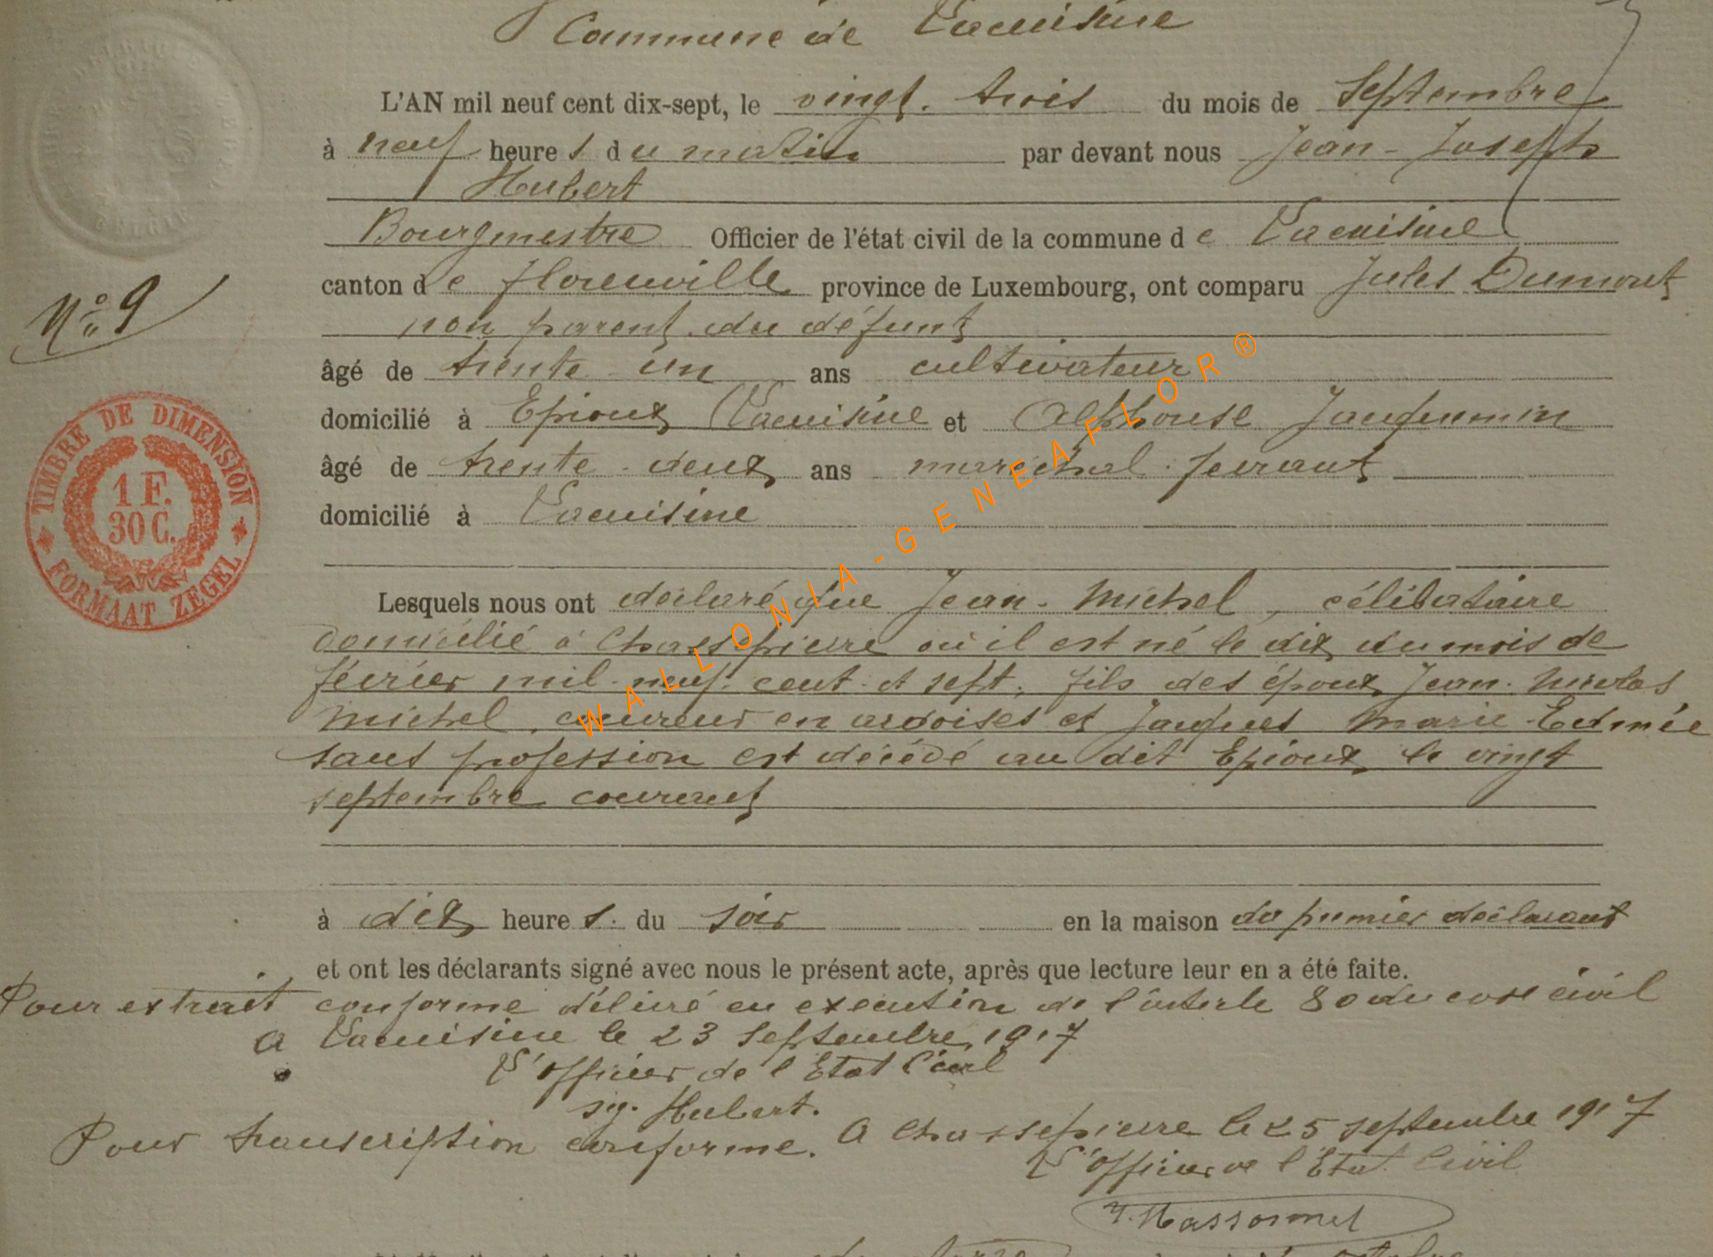 Commune de Lacuisine
L'AN mil neuf cent dix-sept, le vingt-trois du mois de Septembre
à neuf heures du matin par devant nous Jean-Joseph
Hubert
Bourgmestre Officier de l'état civil de la commune de Lacuisine
canton de Florenville province de Luxembourg, ont comparu Jules Dumont
non parent du défunt
âgé de trente un ans cultivateur
domicilié à Epioux Lacuisine et Alphonse Jacquemin
âgé de trente-deux ans maréchal ferrant
domicilié à Lacuisine
Lesquels nous ont déclaré que Jean-Michel, célibataire
domicilié à Chassepierre où il est né le dix du mois de
février mil-neuf-cent et sept, fils des époux Jean-Nicolas
Michel, couvreur en ardoises et Jacques Marie-Edmée
sans profession est décédé au dit Epioux le vingt
septembre courant
à dix heures du soir en la maison du premier déclarant
et ont les déclarants signé avec nous le présent acte, après que lecture leur en a été faite.
Pour extrait conforme délivré en exécution de l'article 80 du code civil
A Lacuisine le 23 Septembre 1917
L'officier de l'Etat Civil
sig. Hubert.
Pour transcription conforme. A Chassepierre le 25 septembre 1917
L'officier de l'Etat Civil
Massonnet
N° 9
TIMBRE DE DIMENSION
1 F.
30 C.
FORMAAT ZEGEL
WALLONIA-GENEAFLOR®